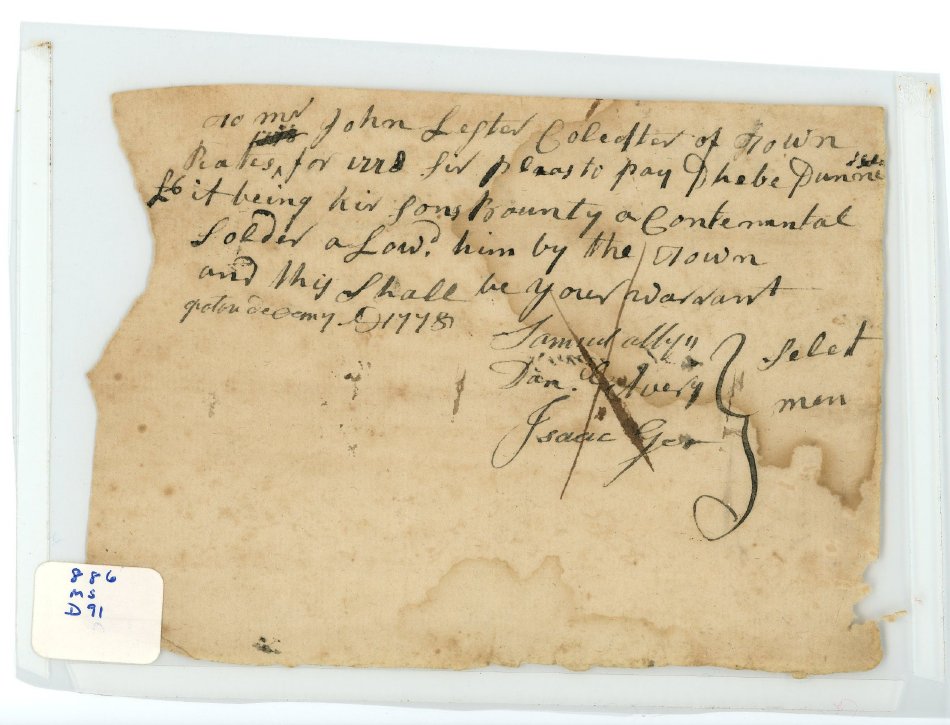 To mr John Lester Colecter of Town
Rates, for 1778 Sir pleas to pay Phebe Dunne
£6 it being hir Sons Bounty a Contenental
Solder a Lowd. him by the Town
and this Shall be your warrant
groton 1778
Samuel allyn
Dan. Avery
Isaac Ger
Selet
men
886
MS
D91